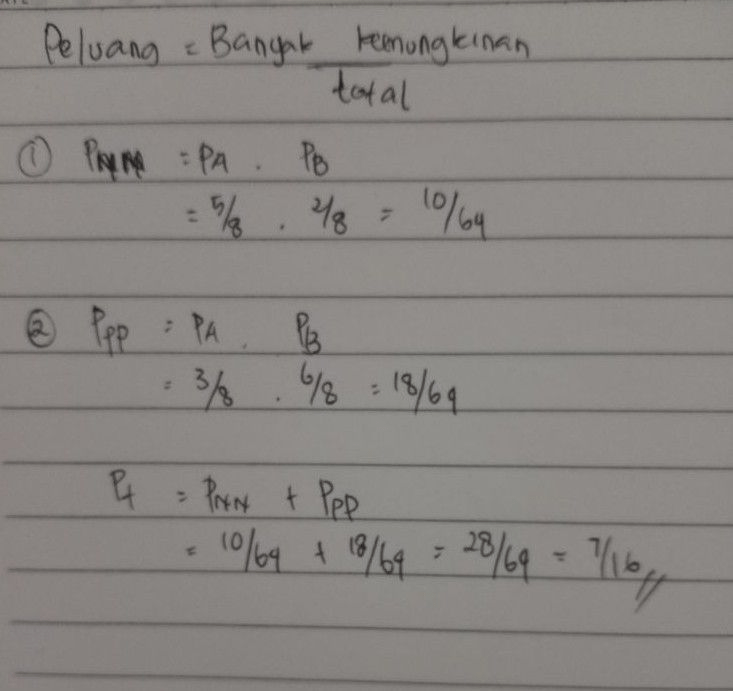 Peluang = Banyak kemungkinan
total
① PNN = PA . PB
= 5/8 . 2/8 = 10/64
② PPP = PA . PB
= 3/8 . 6/8 = 18/64
Pt = PNN + PPP
= 10/64 + 18/64 = 28/64 = 7/16 //